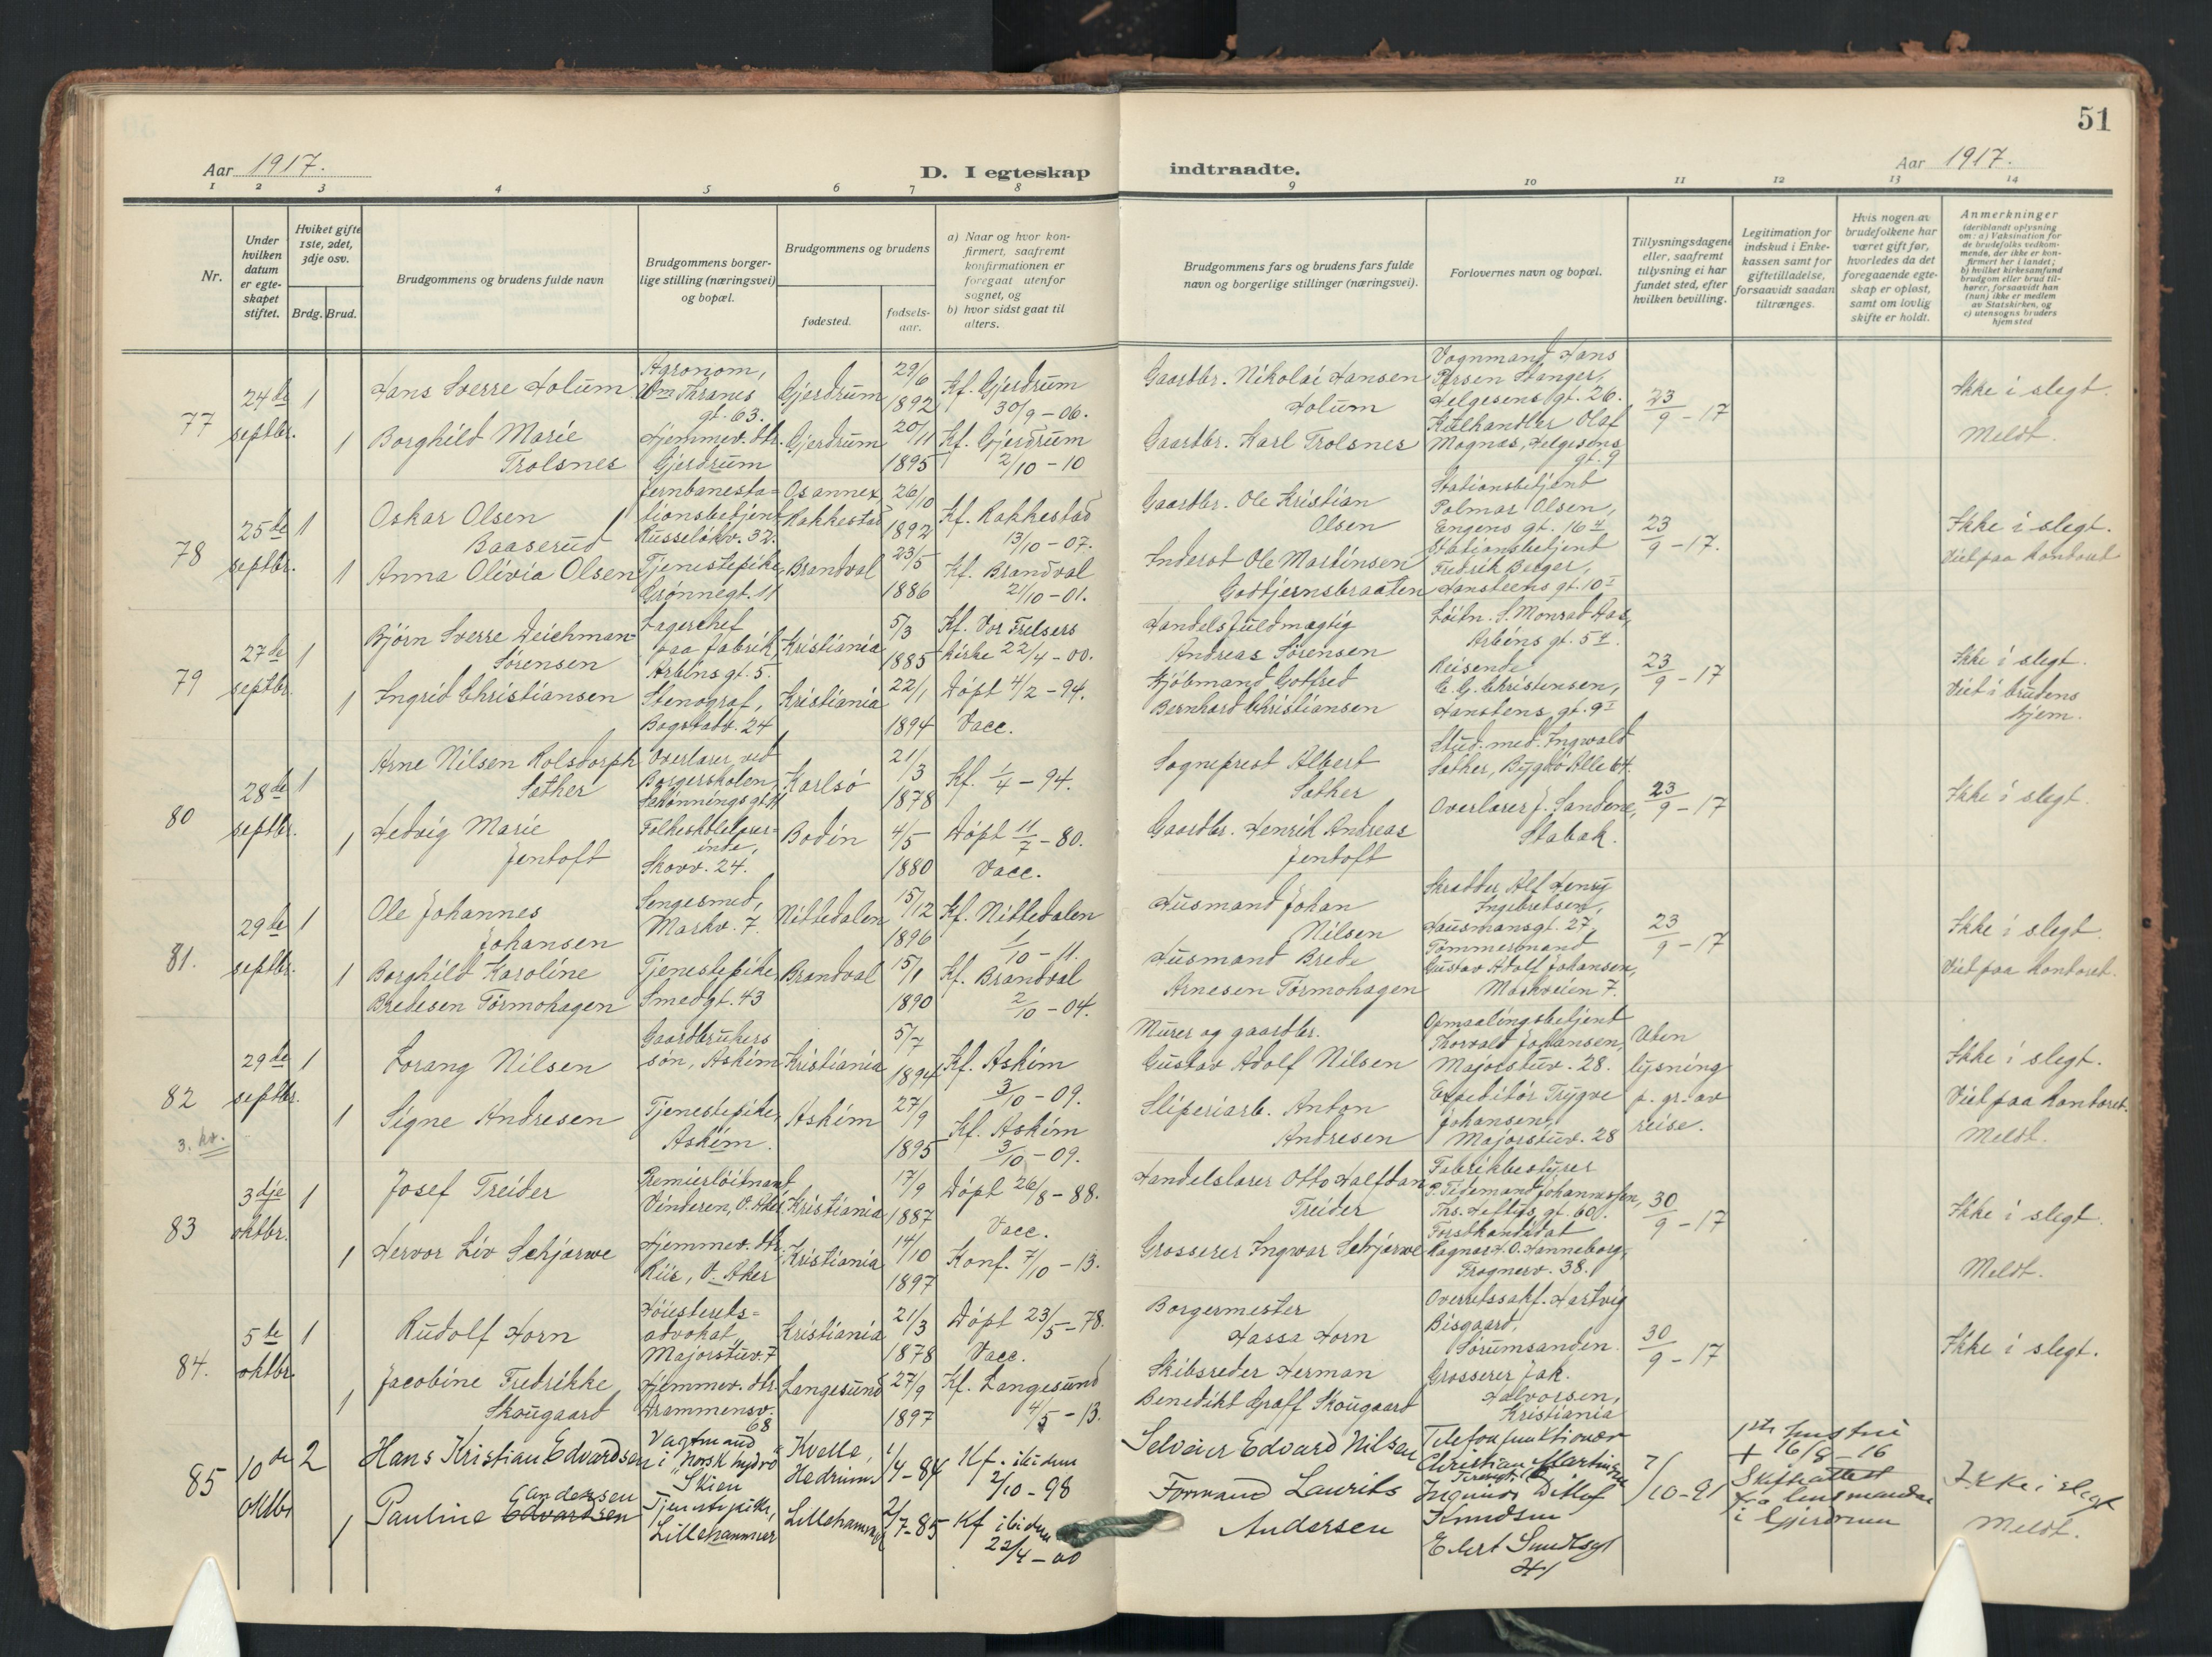 51
Aar 1917.
D. I egteskap indtraadte.
Aar 1917.
1 2 3 4 5 6 7 8 9 10 11 12 13 14
Nr.
Under hvilken datum er egteskapet stiftet.
Hviket gifte 1ste, 2det, 3dje osv.
Brdg. Brud.
Brudgommens og brudens fulde navn
Brudgommens borgerlige stilling (næringsvei) og bopæl.
Brudgommens og brudens
fødested.
fødselsaar.
a) Naar og hvor konfirmert, saafremt konfirmationen er foregaat utenfor sognet, og
b) hvor sidst gaat til alters.
Brudgommens fars og brudens fars fulde navn og borgerlige stillinger (næringsvei).
Forlovernes navn og bopæl.
Tillysningsdagene eller, saafremt tillysning ei har fundet sted, efter hvilken bevilling.
Legitimation for indskud i Enkekassen samt for giftetilladelse, forsaavidt saadan tiltrænges.
Hvis nogen av brudefolkene har været gift før, hvorledes da det foregaaende egteskap er opløst, samt om lovlig skifte er holdt.
Anmerkninger
(deriblandt oplysning om: a) Vaksination for de brudefolks vedkommende, der ikke er konfirmert her i landet;
b) hvilket kirkesamfund brudgom eller brud tilhører, forsaavidt han (hun) ikke er medlem av Statskirken, og
c) utensogns bruders hjemsted
77
24de septbr.
1
Hans Sverre Holum
Agronom, Wm. Thranes gt. 63.
Gjerdrum
29/6 1892
Kf. Gjerdrum 30/9 - 06.
Gaardbr. Nikolai Hansen Holum
Vognmand Hans Larsen Stanger, Helgesens gt. 26.
23/9 - 17
Ikke i slegt.
1
Borghild Marie Trolsnes
Hjemmev. dtr. Gjerdrum
Gjerdrum
20/11 1895
Kf. Gjerdrum 2/10 - 10
Gaardbr. Karl Trolsnes
Kulhandler Olaf Mognæs, Helgesens gt. 9
Meldt.
78
25de septbr.
1
Oskar Olsen Baaserud
Jernbanestationsbetjent Russeløkv. 32.
Os annex Rakkestad
26/10 1892
Kf. Rakkestad 13/10 - 07.
Gaardbr. Ole Kristian Olsen
Stationsbetjent Palmar Olsen, Engens gt. 16
23/9 - 17.
Ikke i slegt.
1
Anna Olivia Olsen
Tjenestepike, Grønnegt. 11
Brandval
23/5 1886
Kf. Brandval 21/10 - 01.
Inderst Ole Martinsen Godtjernsbraaten
Stationsbetjent Fredrik Berger, Hansteens gt. 10 I
Viet paa kontoret
79
27de septbr.
1
Bjørn Sverre Deichman-Sørensen
Lagerchef paa fabrik, Arbins gt. 5.
Kristiania
5/3 1885
Kf. Vor Frelsers kirke 22/4 - 00.
Handelsfuldmægtig Andreas Sørensen
Løitn. S. Monrad Aas, Arbins gt. 5
23/9 - 17
Ikke i slegt.
1
Ingrid Christiansen
Stenograf, Bogstadv. 24
Kristiania
22/1 1894
Døpt 4/2 - 94. Vacc.
Kjøbmand Gotfred Bernhard Christiansen
Reisende C. G. Christensen, Hanstens gt. 9 I
Viet i brudens hjem.
80
28de septbr.
1
Arne Nilsen Rolsdorph Sæther
Overlærer ved Borgerskolen, Schønnings gt. 14
Karlsø
21/3 1878
Kf. 1/4 - 94.
Sogneprest Albert Sæther
Stud. med. Ingwald Sæther, Bygdø Alle 64.
23/9 - 17
Ikke i slegt.
1
Hedvig Marie Jentoft
Folkeskolelærerinde, Skovv. 24.
Bodin
4/5 1880
Døpt 11/7 - 80. Vacc.
Gaardbr. Henrik Andreas Jentoft
Overlærer J. Sandene, Stabæk.
81.
29de septbr.
1
Ole Johannes Johansen
Sengesmed, Markv. 7.
Nittedalen
15/12 1896
Kf. Nittedalen 1/10 - 11.
Husmand Johan Nilsen
Skrædder Alf Henry Ingebretsen, Hausmansgt. 27,
23/9 - 17
Ikke i slegt.
1
Borghild Karoline Bredesen Tørmohagen
Tjenestepike, Smedgt. 43
Brandval
15/1 1890
Kf. Brandval 2/10 - 04.
Husmand Brede Arnesen Tørmohagen
Tømmermand Gustav Adolf Johansen, Markveien 7.
Viet paa kontoret.
82
29de septbr.
1
Lorang Nilsen
Gaardbrukers søn, Askim
Kristiania
5/7 1894
Kf. Askim 3/10 - 09.
Murer og gaardbr. Gustav Adolf Nilsen
Opmaalingsbetjent Thorvald Johansen, Majorstuv. 28.
Uten lysning p. gr. av reise.
Ikke i slegt.
1
Signe Andresen
Tjenestepike, Askim.
Askim
27/9 1895
Kf. Askim 3/10 - 09.
Sliperiarb. Anton Andresen
Expeditør Trygve Johansen, Majorstuv. 28
Viet paa kontoret.
Meldt.
3. kv.
83
3dje oktbr.
1
Josef Treider
Premierløitnant Vinderen, V. Aker
Kristiania
17/9 1887
Døpt 26/8 - 88. Vacc.
Handelslærer Otto Halfdan Treider
Fabrikbestyrer P. Tidemand Johannessen, Ths. Heftyes gt. 60.
30/9 - 17
Ikke i slegt.
1
Hervor Liv Schjarwe
Hjemmev. dtr. Riis, V. Aker
Kristiania
14/10 1897
Konf. 7/10 - 13.
Grosserer Ingwar Schjarwe
Forstkandidat Ragnar H. O. Hanneborg, Frognerv. 38.
Meldt.
84.
5te oktbr.
1
Rudolf Horn
Høiesteretsadvokat, Majorstuv. 7
Kristiania
21/3 1878
Døpt 23/5 - 78. Vacc.
Borgermester Hassa Horn
Overretssakf. Hartvig Bisgaard, Sørumsanden.
30/9 - 17
Ikke i slegt.
1
Jacobine Fredrikke Skougaard
Hjemmev. dtr. Drammensv. 68
Langesund
27/9 1897
Kf. Langesund 4/5 - 13.
Skibsreder Herman Benedikt Graff Skougaard
Grosserer Jak. Halvorsen, Kristiania
85
10de oktbr
2
Hans Kristian Edvardsen
Vagtmand i "Norsk hydro" Skien
Kvelle, Hedrum.
1/4 - 84
Kf. ibidem 2/10 - 98
Selveier Edvard Nilsen
Telefonfunktionær Christian Martinsen
7/10 - 21
1ste hustru + 16/8 - 16
Skifteattest fra lensmanden i Gjerdrum
Ikke i slegt
1
Pauline Edvardsen Andersen
Tjenestepike, Lillehammer
Lillehammer
2/7 - 85
Kf ibidem 22/4 - 00
Formand Laurits Andersen
Ingeniør Ditlef Knudsen
Eilert Sundtsgt 41
Meldt.